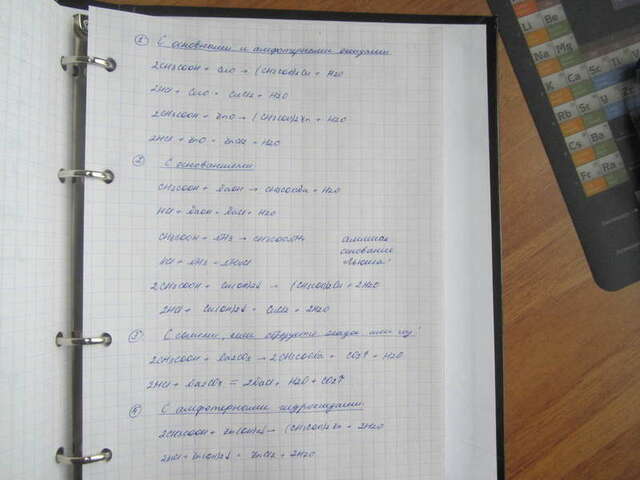 1 С основными и амфотерными оксидами
2CH3COOH + CuO → (CH3COO)2Cu + H2O
2HCl + CuO = CuCl2 + H2O
2CH3COOH + ZnO → (CH3COO)2Zn + H2O
2HCl + ZnO = ZnCl2 + H2O
2 С основаниями
CH3COOH + NaOH → CH3COONa + H2O
HCl + NaOH = NaCl + H2O
CH3COOH + NH3 → CH3COONH4 аммиак
основание
HCl + NH3 = NH4Cl Льюиса!
2CH3COOH + Cu(OH)2↓ → (CH3COO)2Cu + 2H2O
2HCl + Cu(OH)2↓ = CuCl2 + 2H2O
3 С солями, если образуется осадок или газ!
2CH3COOH + Na2CO3 → 2CH3COONa + CO2↑ + H2O
2HCl + Na2CO3 = 2NaCl + H2O + CO2↑
4 С амфотерными гидроксидами
2CH3COOH + Zn(OH)2↓ → (CH3COO)2Zn + 2H2O
2HCl + Zn(OH)2↓ = ZnCl2 + 2H2O
Li Be
Na Mg
K Ca Sc Ti
Rb Sr
Cs Ba
Fr Ra